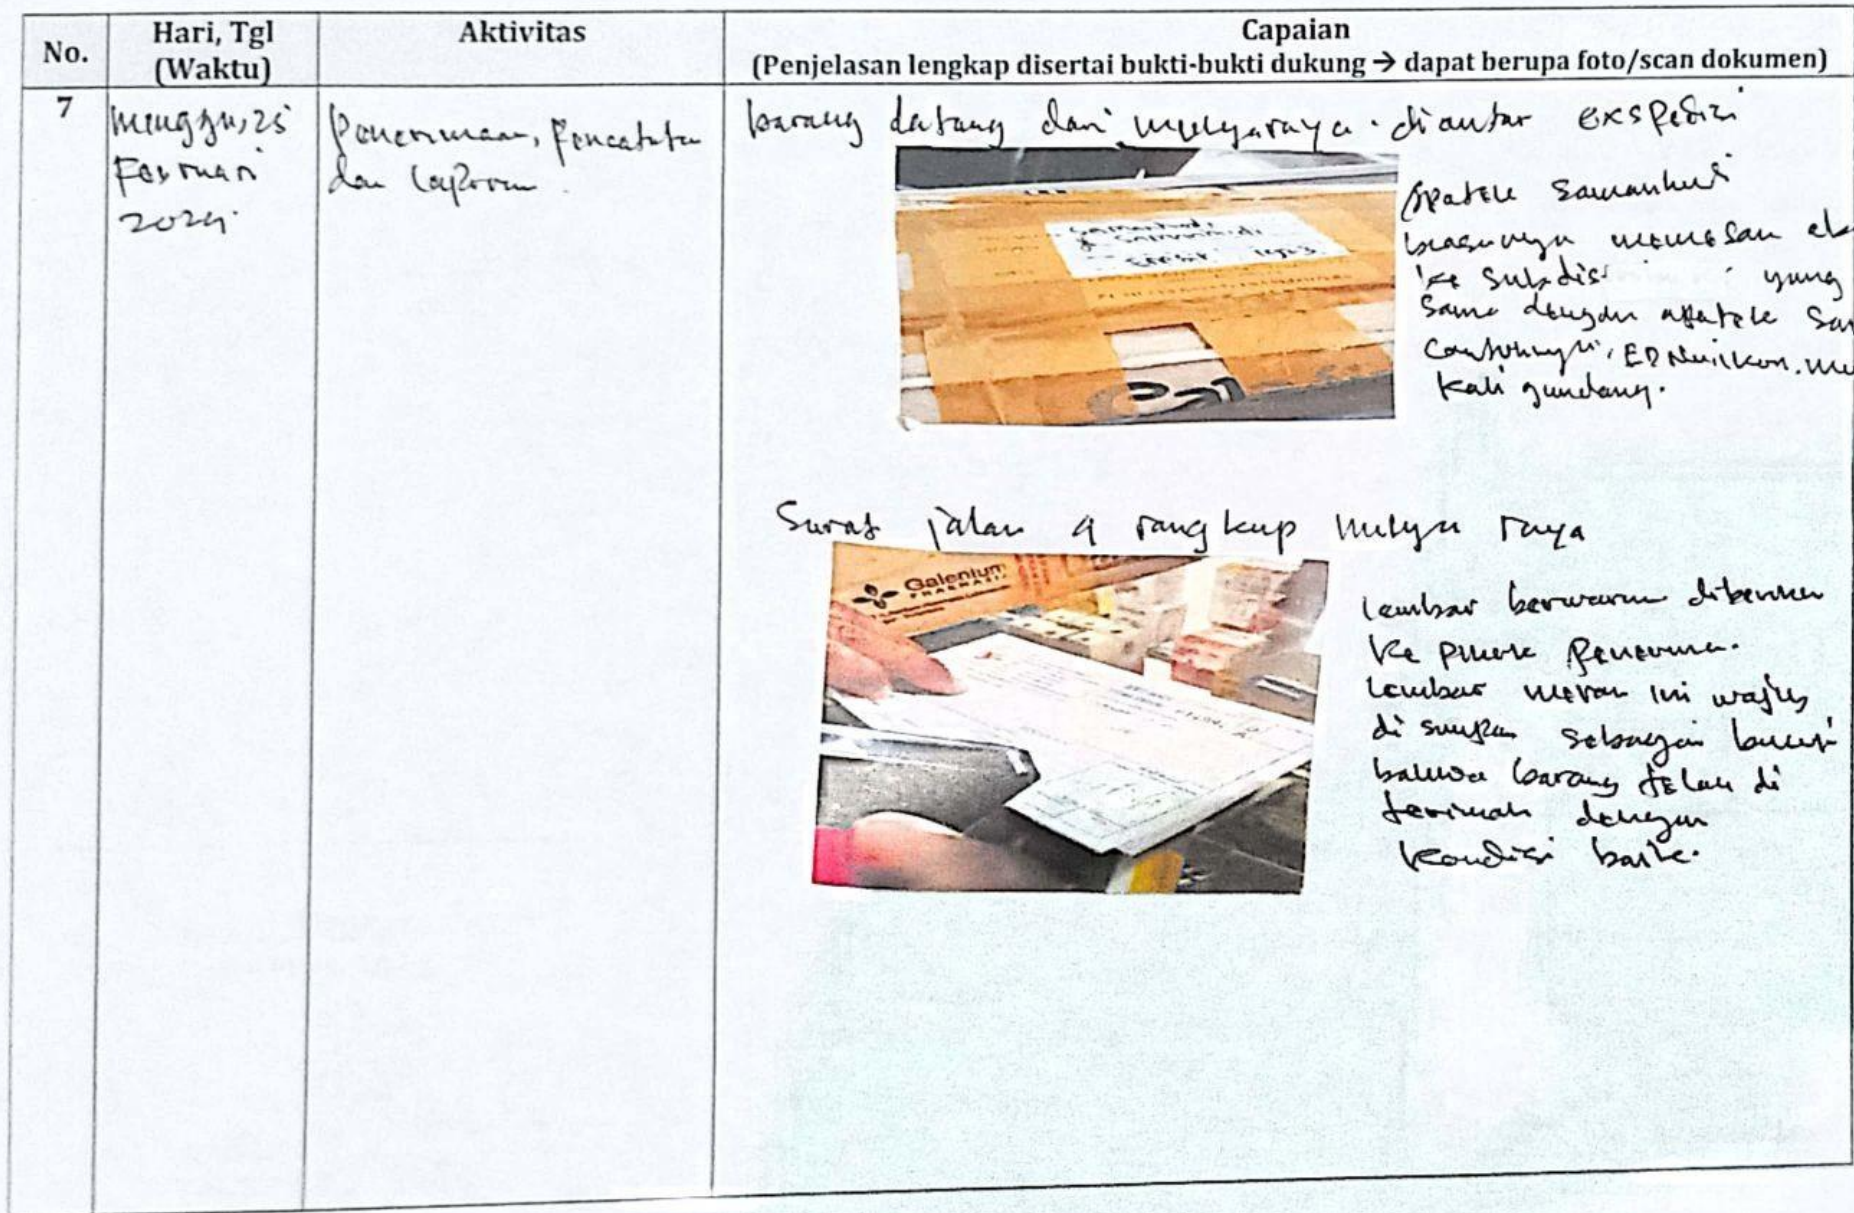 No.
Hari, Tgl
(Waktu)
Aktivitas
Capaian
(Penjelasan lengkap disertai bukti-bukti dukung → dapat berupa foto/scan dokumen)
7
minggu, 25
Februari
2024.
Penerimaan, Pencatata
dan laporan.
barang datang dari mulyaraya. diantar ekspedisi
Apatek Samanhudi
biasanya memesan
ke subdis yang
sama dengan apatek
contohnya,
kali gundang.
Surat jalan 4 rangkap mulya raya
Galenium
PHARMASIA
lembar berwarna diberikan
ke pihak penerima.
lembar merah ini wajib
di simpan sebagai bukti
bahwa barang telah di
terimah dengan
kondisi baik.